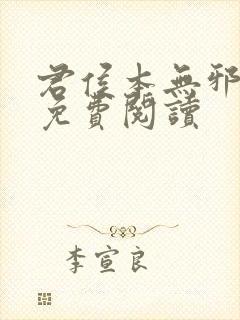 君侯本無邪
免費閱讀
李宣良